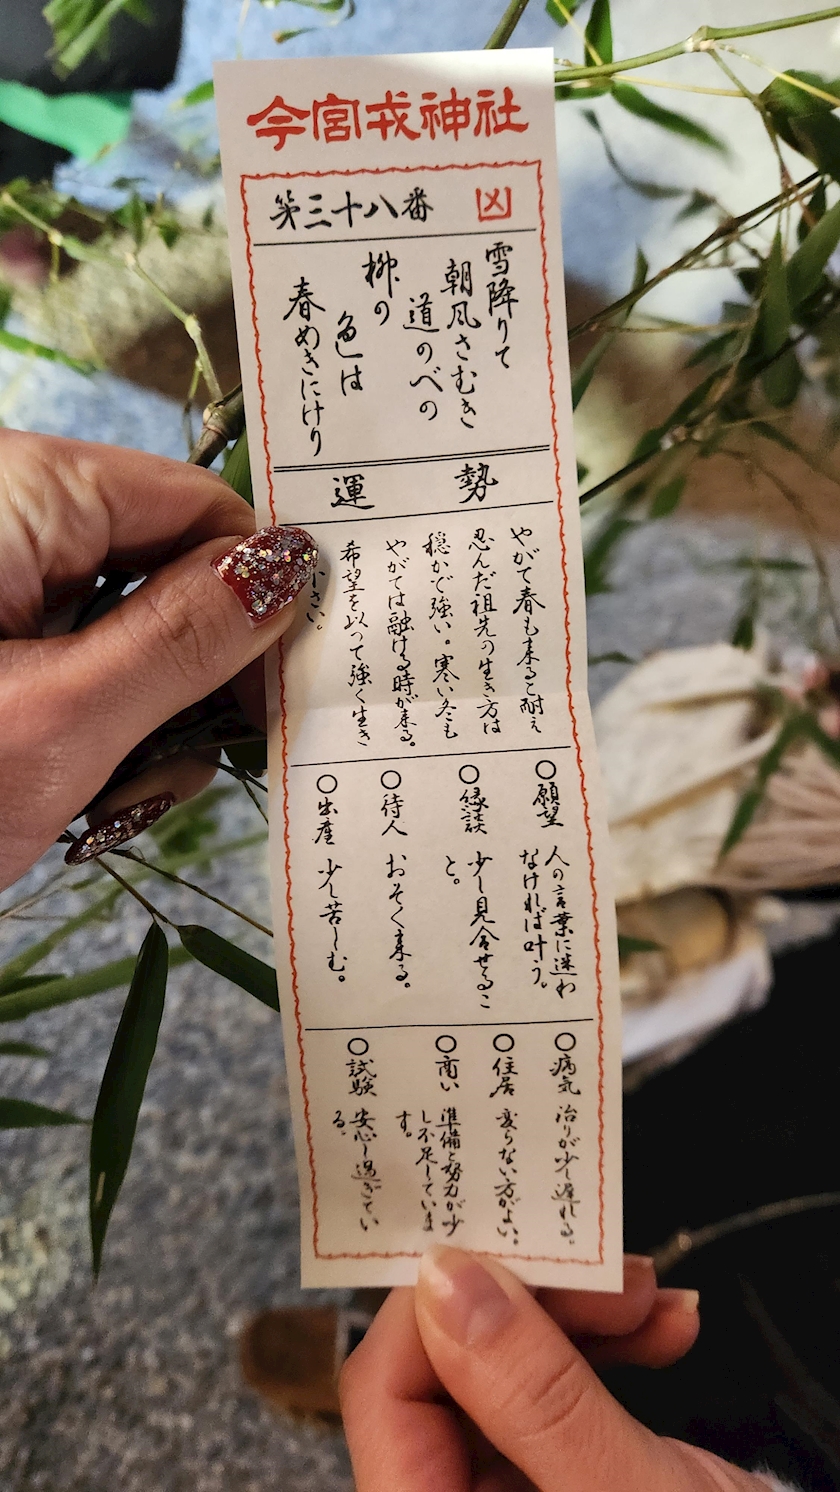 今宮戎神社
第三十八番 凶
雪降りて
朝風さむき
道のべの
柳の
色は
春めきにけり
運勢
やがて春も来ると耐え
忍んだ祖先の生き方は
穏かで強い。寒い冬も
やがては融ける時が来る。
希望を以って強く生き
さい。
〇願望
人の言葉に迷わ
なければ叶う。
〇縁談
少し見合せるこ
と。
〇待人
おそく来る。
〇出産
少し苦しむ。
〇病気
治りが少し遅れる。
〇住居
変らない方がよい。
〇商い
準備と努力が少
し不足していま
す。
〇試験
安心し過ぎてい
る。